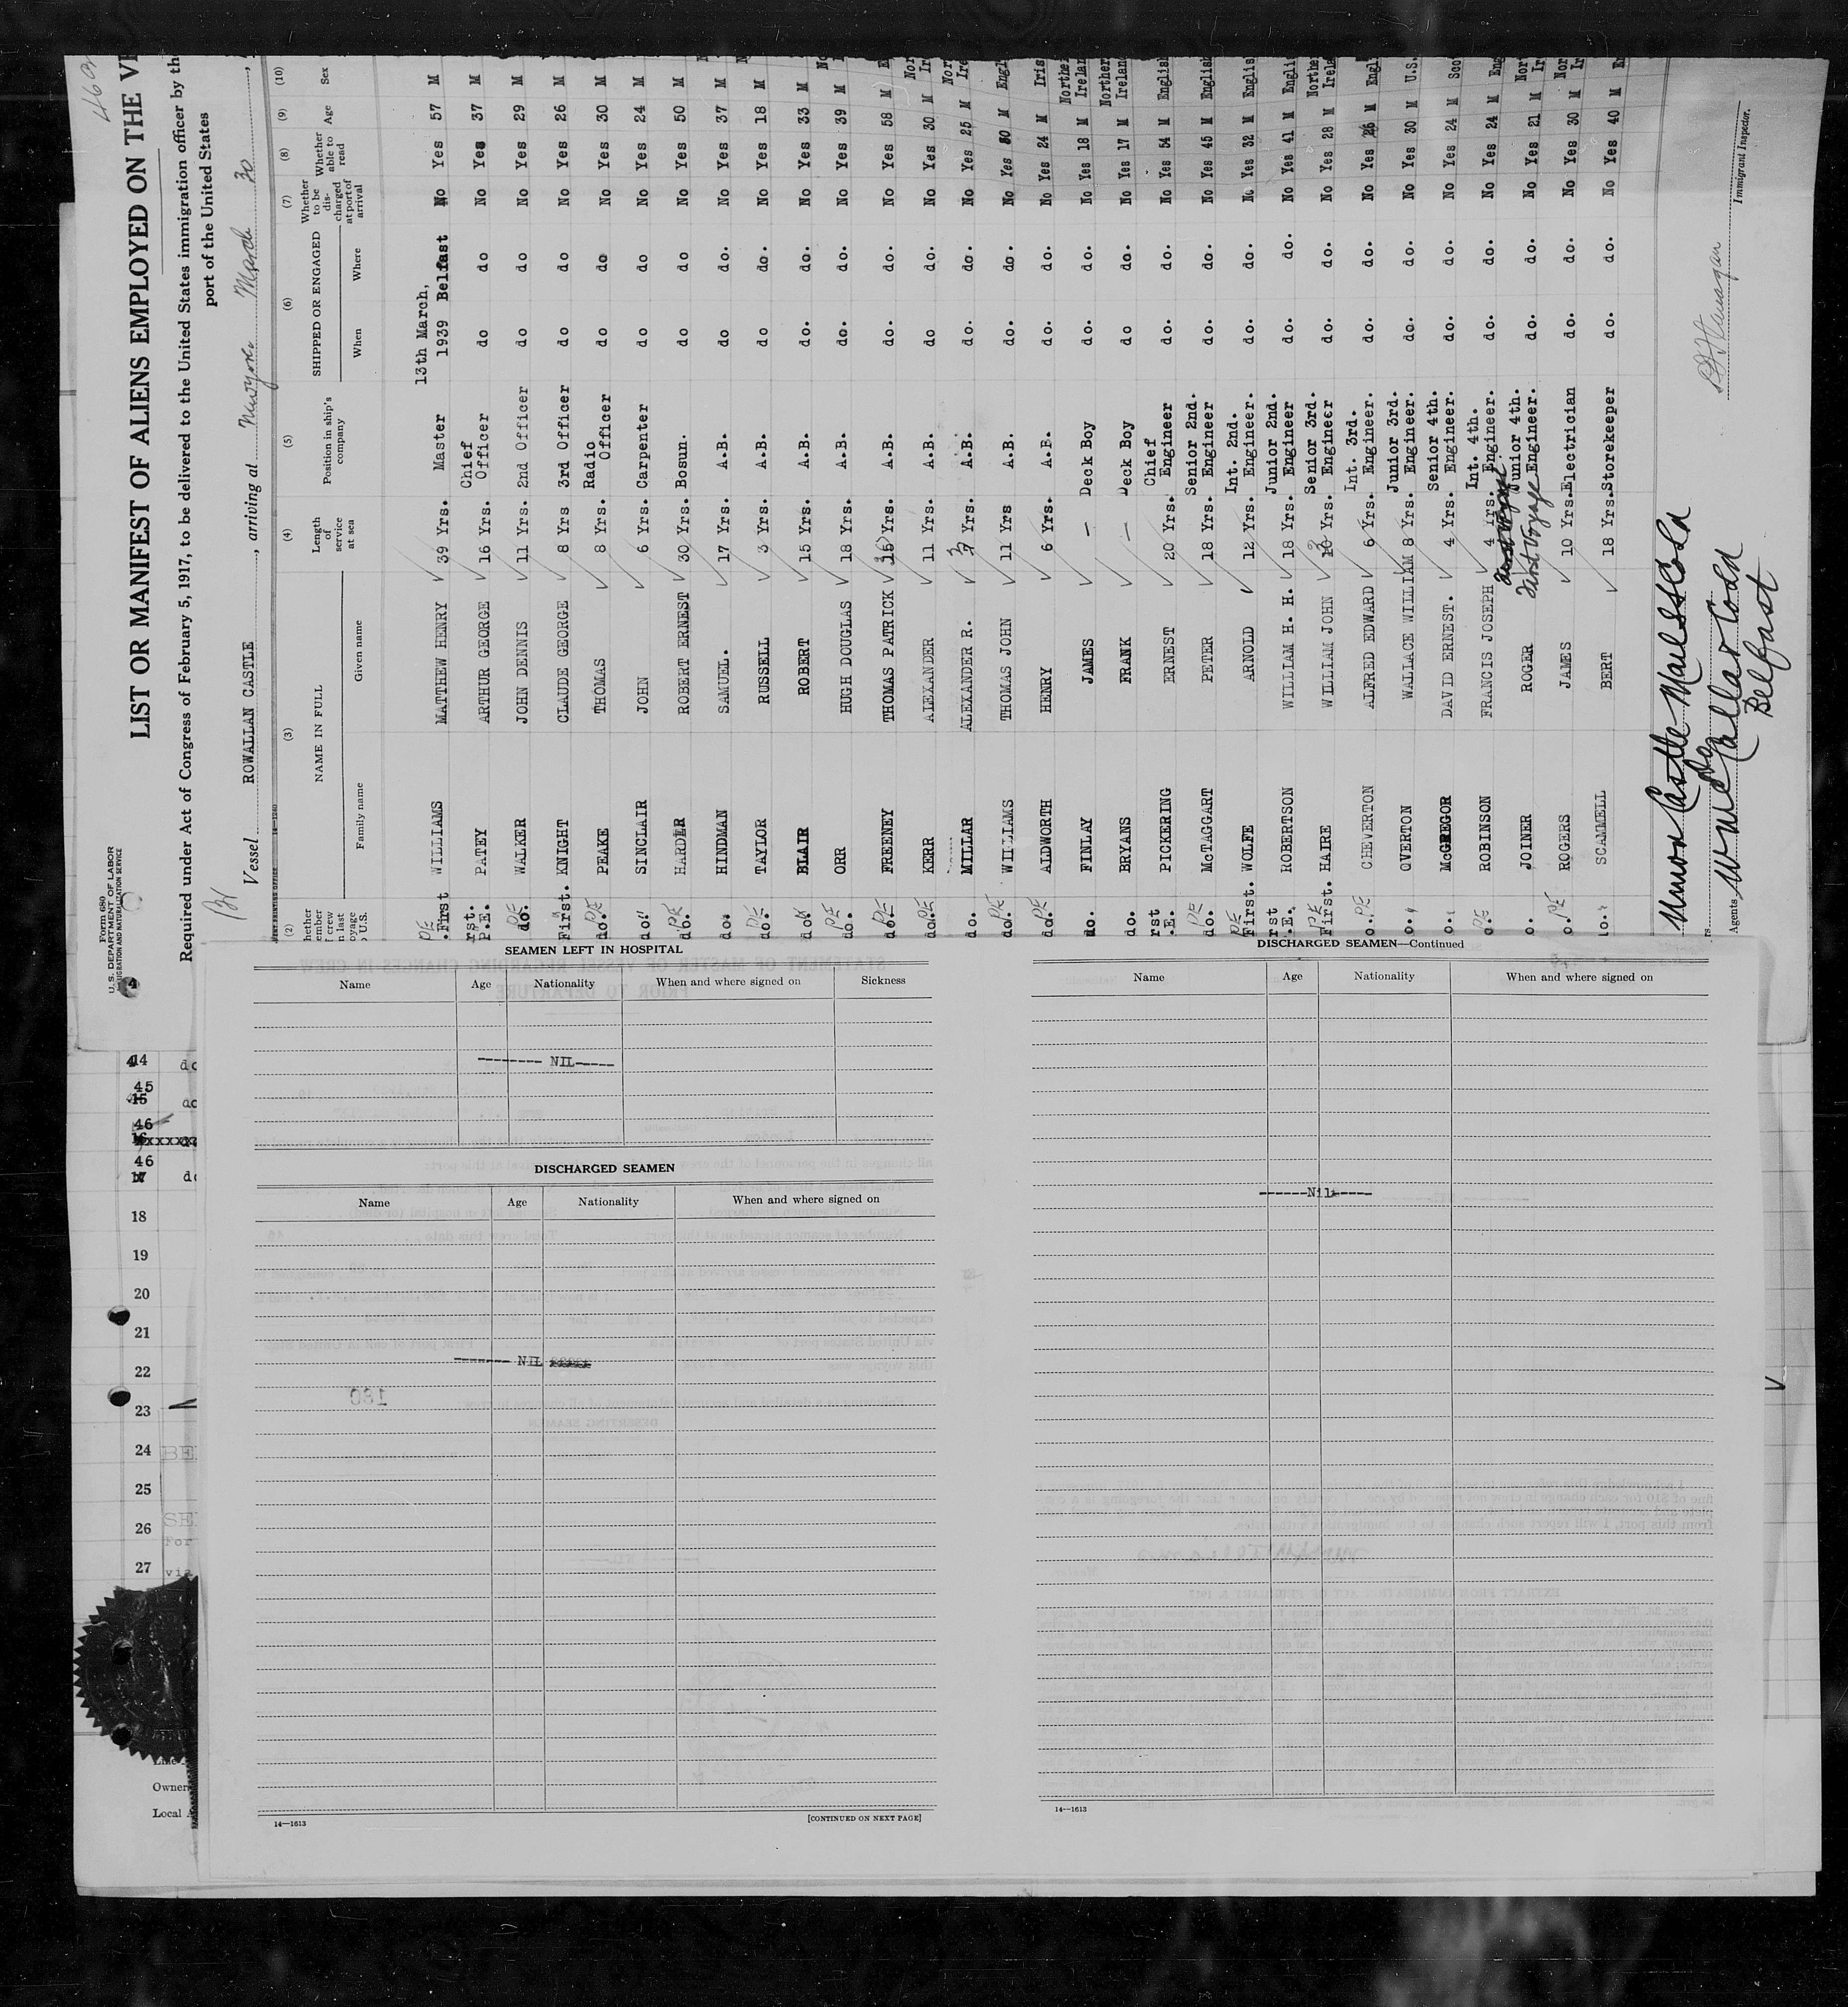 Form 680
U. S. DEPARTMENT OF LABOR
IMMIGRATION AND NATURALIZATION SERVICE
LIST OR MANIFEST OF ALIENS EMPLOYED ON THE
Required under Act of Congress of February 5, 1917, to be delivered to the United States immigration officer by the
port of the United States
Vessel ROWALLAN CASTLE, arriving at New York March 30
(2) (3) (4) (5) (6) (7) (8) (9) (10)
NAME IN FULL
Family name Given name
Length of service at sea
Position in ship's company
SHIPPED OR ENGAGED
When Where
Whether to be discharged at port of arrival
Whether able to read
Age
Sex
First WILLIAMS MATTHEW HENRY 39 Yrs. Master 13th March, 1939 Belfast No Yes 57 M
P.E. PATEY ARTHUR GEORGE 16 Yrs. Chief Officer do do No Yes 37 M
do. WALKER JOHN DENNIS 11 Yrs. 2nd Officer do do No Yes 29 M
First. KNIGHT CLAUDE GEORGE 8 Yrs 3rd Officer do do No Yes 26 M
do. PEAKE THOMAS 8 Yrs. Radio Officer do do No Yes 30 M
do. SINCLAIR JOHN 6 Yrs. Carpenter do do No Yes 24 M
do. HARDER ROBERT ERNEST 30 Yrs. Bosun. do do No Yes 50 M
do. HINDMAN SAMUEL. 17 Yrs. A.B. do do. No Yes 37 M
do. TAYLOR RUSSELL 3 Yrs. A.B. do do. No Yes 18 M
do. BLAIR ROBERT 15 Yrs. A.B. do. do. No Yes 33 M
do. ORR HUGH DOUGLAS 18 Yrs. A.B. do. do. No Yes 39 M
do. FREENEY THOMAS PATRICK Yrs. A.B. do. do. No Yes 58 M
do. KERR ALEXANDER 11 Yrs. A.B. do do. No Yes 30 M
do. MILLAR ALEXANDER R. Yrs. A.B. do. do. No Yes 25 M
do. WILLIAMS THOMAS JOHN 11 Yrs A.B. do. do. No Yes M Engl
do. ALDWORTH HENRY 6 Yrs. A.B. do. do. No Yes 24 M Iris
do. FINLAY JAMES — Deck Boy do. do. No Yes 18 M Norther Irelan
do. BRYANS FRANK — Deck Boy do do. No Yes 17 M Northern Irelan
PICKERING ERNEST 20 Yrs. Chief Engineer do. do. No Yes 54 M English
do. McTAGGART PETER 18 Yrs. Senior 2nd. Engineer do. do. No Yes 45 M English
First. WOLFE ARNOLD 12 Yrs. Int. 2nd. Engineer. do. do. No Yes 32 M English
ROBERTSON WILLIAM H. H. 18 Yrs. Junior 2nd. Engineer do. do. No Yes 41 M Engli
First. HAIRE WILLIAM JOHN Yrs. Senior 3rd. Engineer do. do. No Yes 28 M Northe Irela
CHEVERTON ALFRED EDWARD 6 Yrs. Int. 3rd. Engineer. do. do. No Yes 26 M Engli
OVERTON WALLACE WILLIAM 8 Yrs. Junior 3rd. Engineer. do. do. No Yes 30 M U.S.
McGREGOR DAVID ERNEST. 4 Yrs. Senior 4th. Engineer. do. do. No Yes 24 M Scot
ROBINSON FRANCIS JOSEPH 4 Yrs. Int. 4th. Engineer. do. do. No Yes 24 M Eng
JOINER ROGER First Voyage Junior 4th. Engineer. do. do. No Yes 21 M
ROGERS JAMES 10 Yrs. Electrician do. do. No Yes 30 M
SCAMMELL BERT 18 Yrs. Storekeeper do. do. No Yes 40 M
Union Castle Mail SS Co Ld
Agents
Belfast
Immigrant Inspector.
SEAMEN LEFT IN HOSPITAL
Name Age Nationality When and where signed on Sickness
-------- NIL-----
DISCHARGED SEAMEN
Name Age Nationality When and where signed on
------- NIL
14—1613
[CONTINUED ON NEXT PAGE]
DISCHARGED SEAMEN—Continued
Name Age Nationality When and where signed on
------Nil-----
14—1613
44
45
46
46
18
19
20
21
22
23
24
25
26
27
Owner
Local